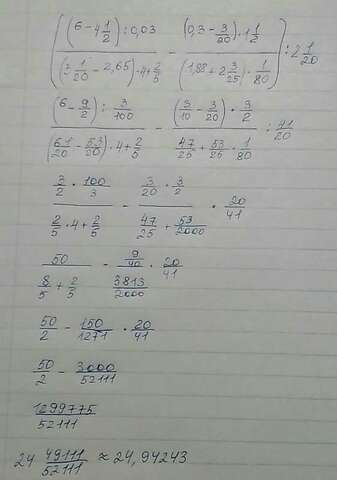 ((6 - 4 1/2) : 0,03 / ((3 1/20 - 2,65) · 4 + 2/5) - (0,3 - 3/20) · 1 1/2 / (1,88 + 2 3/25) · 1/80) : 2 1/20
(6 - 9/2) : 3/100 / (61/20 - 53/20) · 4 + 2/5 - (3/10 - 3/20) · 3/2 / 47/25 + 53/25 · 1/80 : 41/20
3/2 · 100/3 / 2/5 · 4 + 2/5 - 3/20 · 3/2 / 47/25 + 53/2000 · 20/41
50 / 8/5 + 2/5 - 9/40 / 3813/2000 · 20/41
50/2 - 150/1271 · 20/41
50/2 - 3000/52111
1299775/52111
24 49111/52111 ≈ 24,94243